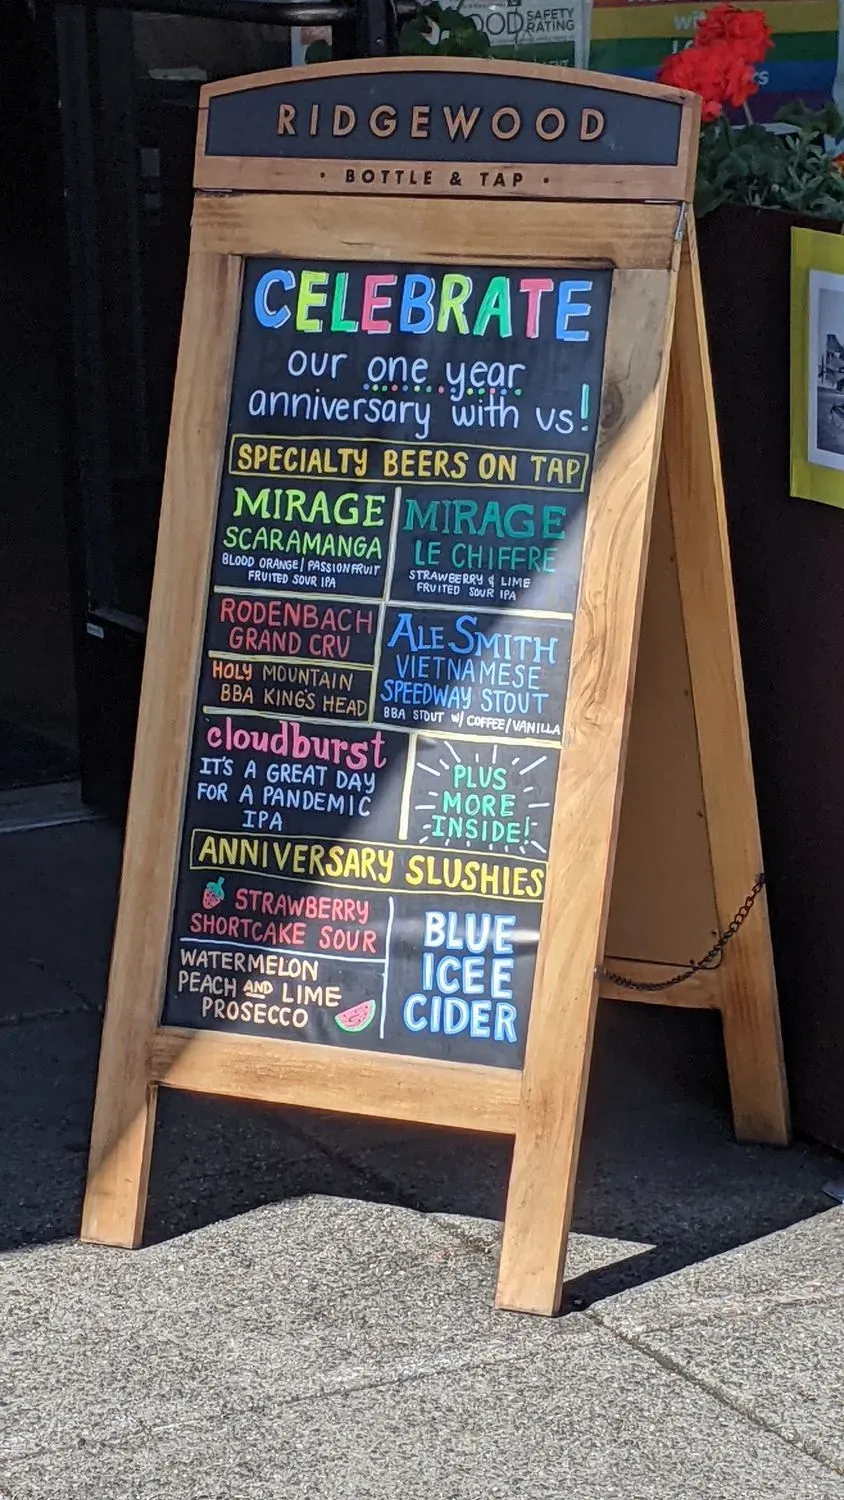 FOOD SAFETY
RATING
RIDGEWOOD
· BOTTLE & TAP ·
CELEBRATE
our one year
anniversary with us!
SPECIALTY BEERS ON TAP
MIRAGE
SCARAMANGA
BLOOD ORANGE/PASSIONFRUIT
FRUITED SOUR IPA
MIRAGE
LE CHIFFRE
STRAWBERRY & LIME
FRUITED SOUR IPA
RODENBACH
GRAND CRU
HOLY MOUNTAIN
BBA KING'S HEAD
ALESMITH
VIETNAMESE
SPEEDWAY STOUT
BBA STOUT W/ COFFEE/VANILLA
cloudburst
IT'S A GREAT DAY
FOR A PANDEMIC
IPA
PLUS
MORE
INSIDE!
ANNIVERSARY SLUSHIES
STRAWBERRY
SHORTCAKE SOUR
WATERMELON
PEACH AND LIME
PROSECCO
BLUE
ICEE
CIDER